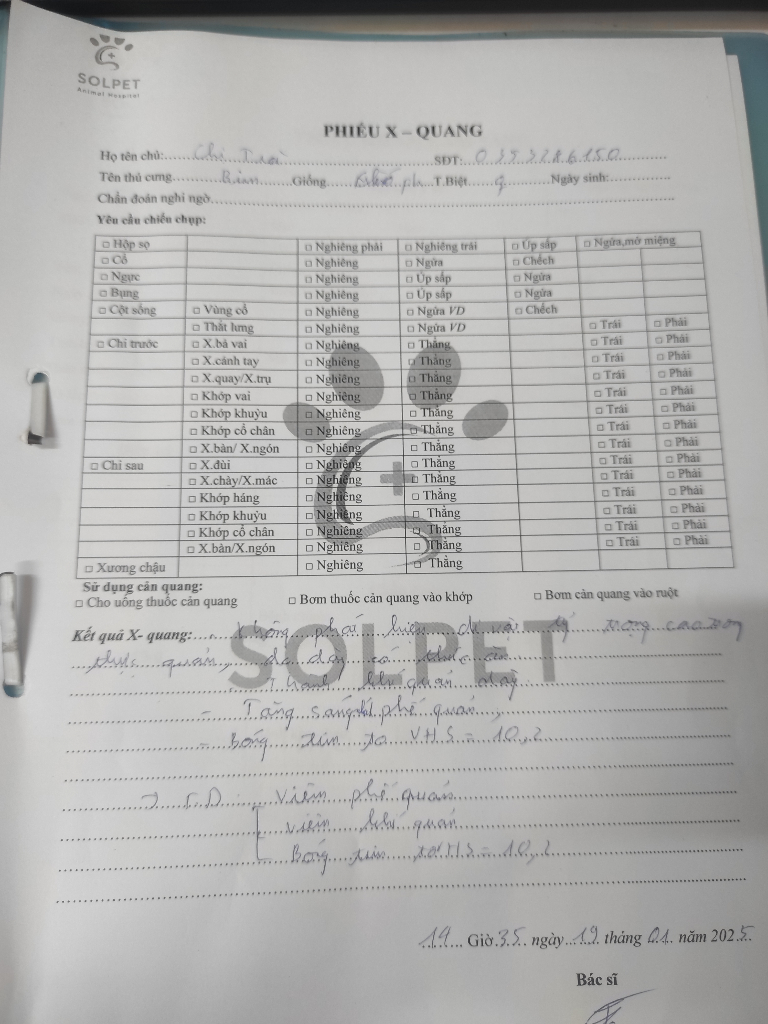 SOLPET
Animal Hospital
PHIẾU X – QUANG
Họ tên chủ:... Chị ... SĐT: 0353286150
Tên thú cưng... Bin ... Giống ... T.Biệt ... Ngày sinh:...
Chẩn đoán nghi ngờ...
Yêu cầu chiếu chụp:
□ Hộp sọ □ Nghiêng phải □ Nghiêng trái □ Úp sấp □ Ngửa,mở miệng
□ Cổ □ Nghiêng □ Ngửa □ Chếch
□ Ngực □ Nghiêng □ Úp sấp □ Ngửa
□ Bụng □ Nghiêng □ Úp sấp □ Ngửa
□ Cột sống □ Vùng cổ □ Nghiêng □ Ngửa VD □ Chếch
□ Thắt lưng □ Nghiêng □ Ngửa VD □ Trái □ Phải
□ Chi trước □ X.bả vai □ Nghiêng □ Thẳng □ Trái □ Phải
□ X.cánh tay □ Nghiêng □ Thẳng □ Trái □ Phải
□ X.quay/X.trụ □ Nghiêng □ Thẳng □ Trái □ Phải
□ Khớp vai □ Nghiêng □ Thẳng □ Trái □ Phải
□ Khớp khuỷu □ Nghiêng □ Thẳng □ Trái □ Phải
□ Khớp cổ chân □ Nghiêng □ Thẳng □ Trái □ Phải
□ X.bàn/ X.ngón □ Nghiêng □ Thẳng □ Trái □ Phải
□ Chi sau □ X.đùi □ Nghiêng □ Thẳng □ Trái □ Phải
□ X.chày/X.mác □ Nghiêng □ Thẳng □ Trái □ Phải
□ Khớp háng □ Nghiêng □ Thẳng □ Trái □ Phải
□ Khớp khuỷu □ Nghiêng □ Thẳng □ Trái □ Phải
□ Khớp cổ chân □ Nghiêng □ Thẳng □ Trái □ Phải
□ X.bàn/X.ngón □ Nghiêng □ Thẳng □ Trái □ Phải
□ Xương chậu □ Nghiêng □ Thẳng
Sử dụng cản quang:
□ Cho uống thuốc cản quang □ Bơm thuốc cản quang vào khớp □ Bơm cản quang vào ruột
Kết quả X- quang:... Không phát hiện dị vật tỷ trọng cao trong
thực quản, dạ dày có thức ăn
SOLPET
- Thành khí quản dày
- Tăng sáng phế quản,
- Bóng tim to VHS = 10,2
Viêm phế quản
Viêm khí quản
Bóng tim to VHS = 10,2
19 Giờ 35 ngày 19 tháng 01 năm 2025
Bác sĩ